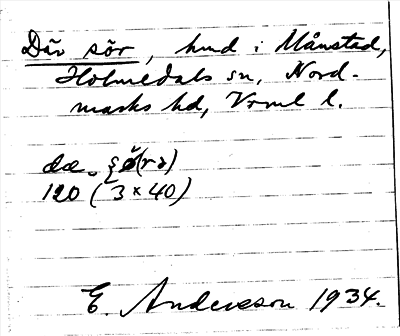 Där sör, hmd i Månstad,
Holmedals sn, Nord-
marks hd, Vrml l.
120 (3 × 40)
E. Anderson 1934.